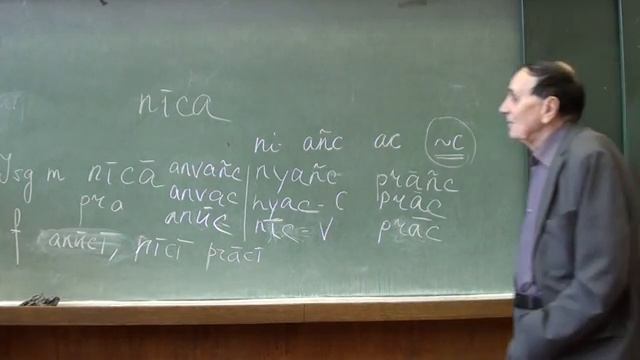 nīca
ni- añc ac ~c
Isg m nīcā anvañc nyañc prāñc
pra anvac nyac-C prāc
anūc nīc-V prāc
f anūcī, nīcī prācī